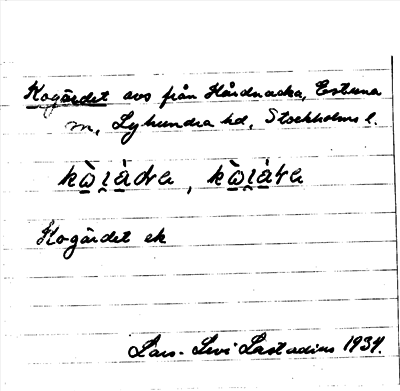 Kogärdet avs från Hårdnacka, Estuna
m, Lyhundra hd, Stockholms l.
kὼ̱ı̯ὰ̱dra, kὼ̱ı̯ὰ̱ra
Kogärdet ek
Lars-Levi Læstadius 1934.